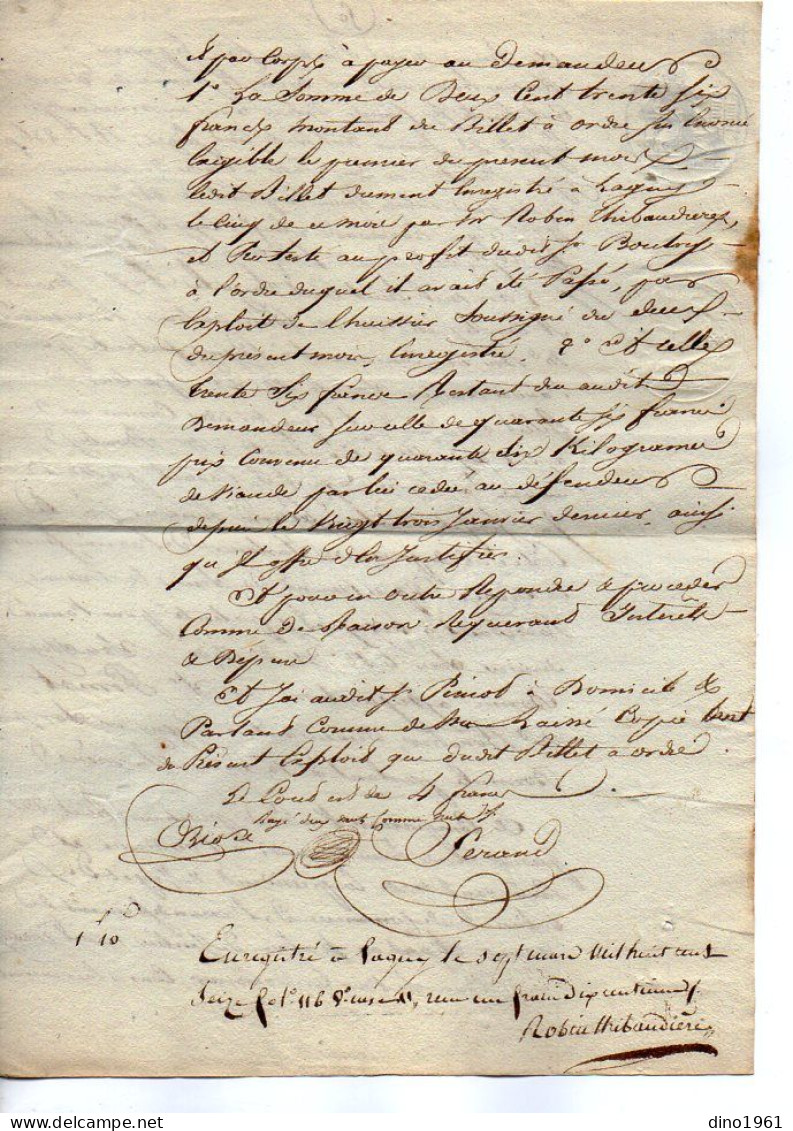 & par Corps à payer au Demandeur
1° La Somme de Deux Cent trente six
francs montant du Billet à ordre sus énoncé
Exigible le premier du present mois
ledit Billet dument Enregistré à Lagny
le Cinq de ce mois par Mr Robin thibaudière,
et Protesté au profit dudit Sr Boutry
à l'ordre duquel il avait été Passé, par
Exploit de l'huissier Soussigné du deux
du présent mois, Enregistré. 2° Et celle
trente Six francs Restant du audit
Demandeur sur celle de quarante six francs
prix Convenu de quarante dix Kilogrames
de Viande par lui cedée au défendeur
depuis le Vingt trois Janvier dernier, ainsi
qu'il offre de le Justifier.
Et pour en outre Repondre & proceder
Comme de Raison Requerant Interêts
& Depens
Et J'ai audit Sr à Domicile &
Parlant Comme dessus Laissé Copie tant
du Présent Exploit que dudit Billet à ordre
Le Cout est de 4 francs
Rayé deux mots Comme nuls
Perand
1 10
Enregistré à Lagny le sept mars Mil huit cent
Seize fol° 116 V° case, reçu un franc dix centimes
Robin thibaudière
dino1961